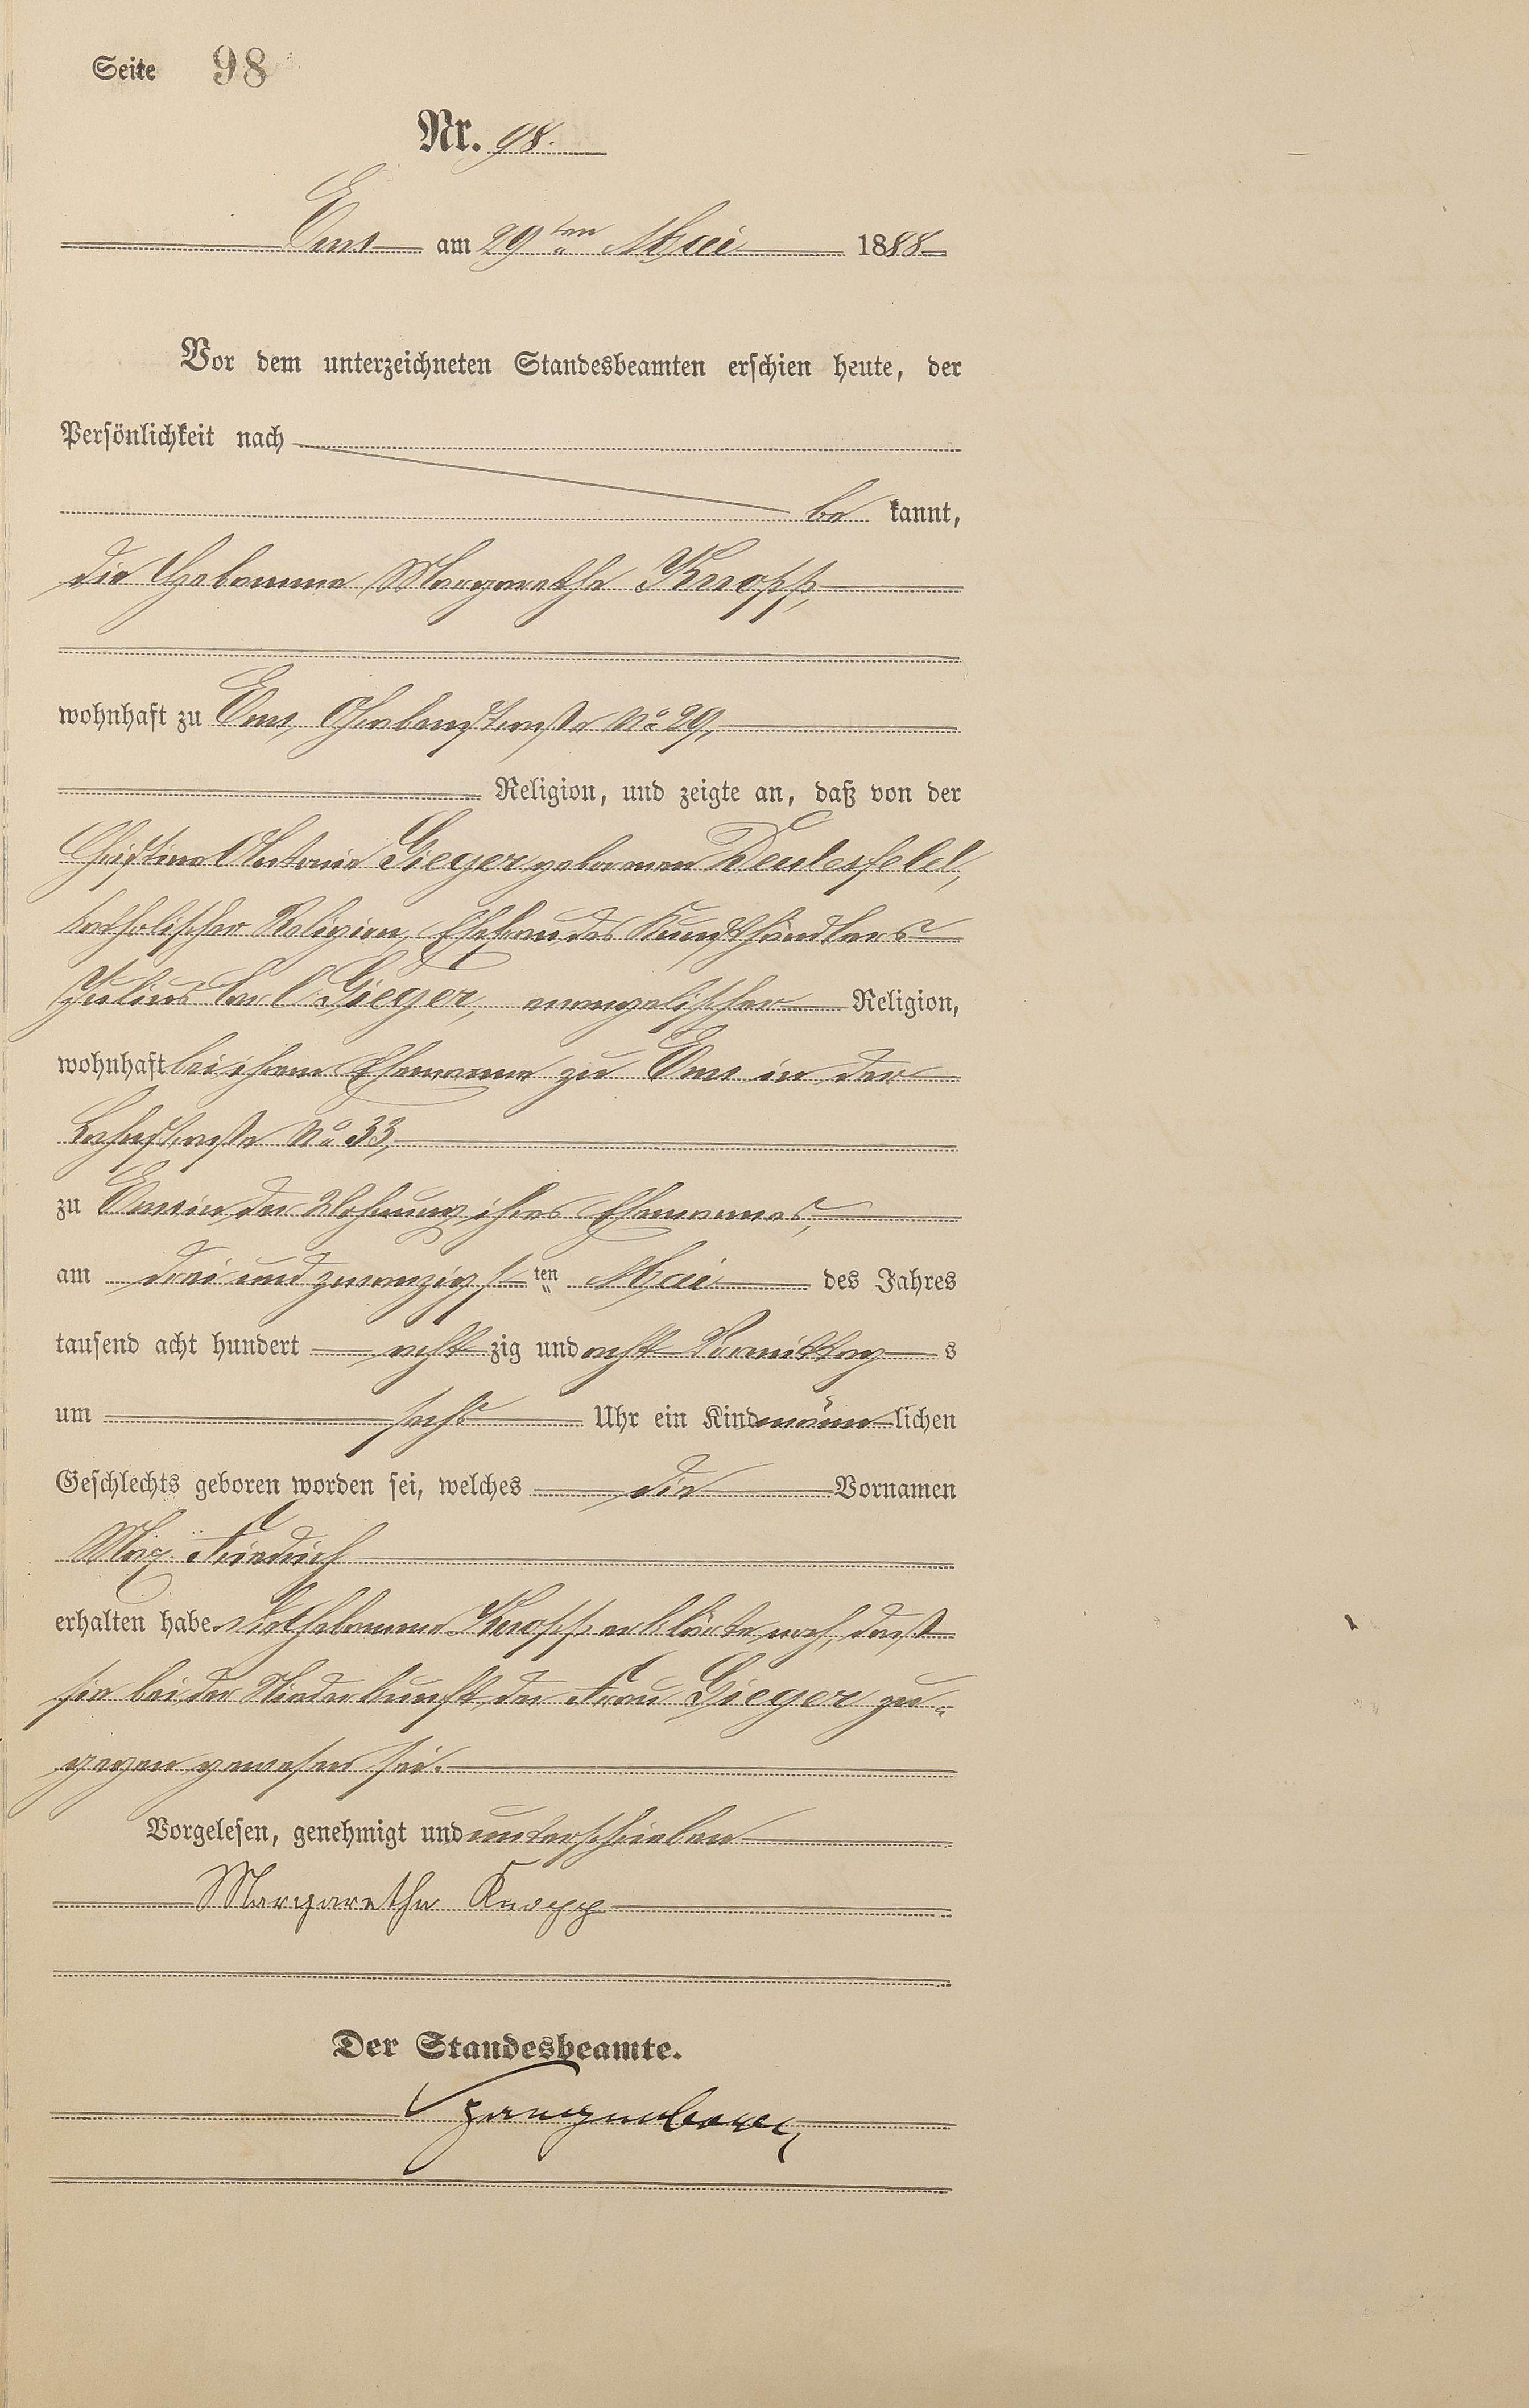 Seite 98
Nr. 98.
Ems am 29ten Mai 1888
Vor dem unterzeichneten Standesbeamten erschien heute, der
Persönlichkeit nach
be kannt,
die Hebamme Margarethe Knopp,
wohnhaft zu Ems, No 29,
Religion, und zeigte an, daß von der
Christine Antonie Gieger geborenen Deulesfeld,
katholischer Religion, Ehefrau des Kunsthändlers
Julius Carl Gieger, evangelischer Religion,
wohnhaft bei ihrem Ehemanne zu Ems in der
No 33,
zu Ems in der Wohnung ihres Ehemannes,
am drei und zwanzigsten Mai des Jahres
tausend acht hundert acht zig und acht Vormittag s
um sechs Uhr ein Kind männ lichen
Geschlechts geboren worden sei, welches die Vornamen
Max Friedrich
erhalten habe. Die Hebamme Knopp erklärte noch, daß
sie bei der Niederkunft der Frau Gieger zu-
gegen gewesen sei.
Vorgelesen, genehmigt und unterschrieben
Margaretha Knopp
Der Standesbeamte.